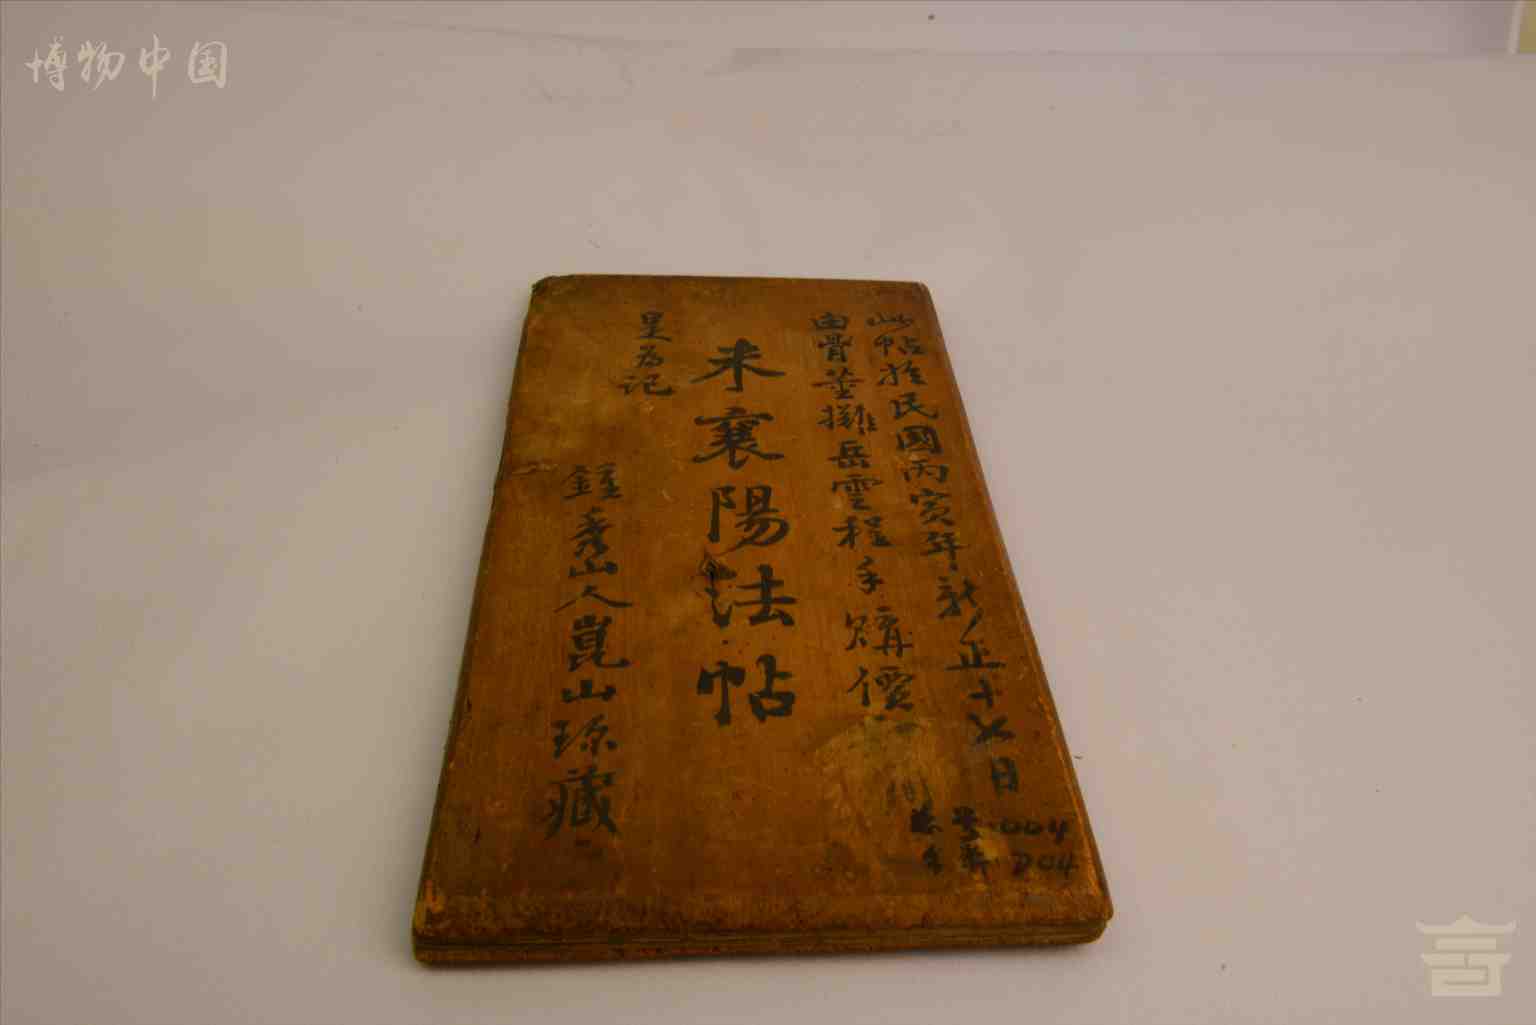 博物中国
此帖於民國丙寅年新正十六日
由骨董攤岳雲程手購價
米襄陽法帖
是為記
鍾秀山人崑山珍藏
总号004
分类D04